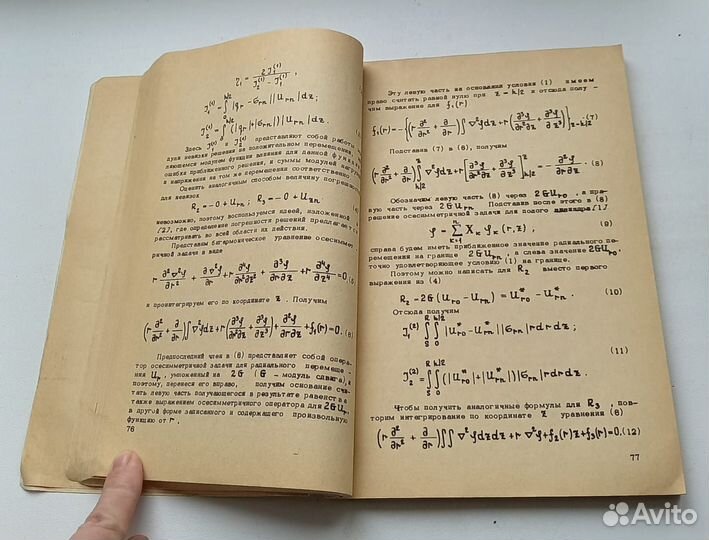 η₁ = 2J₁⁽¹⁾ / (J₂⁽¹⁾ − J₁⁽¹⁾) ,
J₁⁽¹⁾ = ∫₀^{h/2} |q_r − σ_rn| |u_rn| dz;
J₂⁽¹⁾ = ∫₀^{h/2} (|q_r|+|σ_rn|) |u_rn| dz.
Здесь J₁⁽¹⁾ и J₂⁽¹⁾ представляют собой работы
дуля невязки решения на положительном перемещении
ляющемся модулем функции влияния для данной функции
ошибки приближенного решения, и суммы модулей нагрузки
и напряжения на том же перемещении соответственно
Оценить аналогичным способом величину погрешности
для невязок
R₂ = −0 + u_rn ; R₃ = −0 + u_zn
невозможно, поэтому воспользуемся идеей, изложенной
/2/, где определение погрешности решений предлагается
рассматривать во всей области их действия.
Представим бигармоническое уравнение осесиммет-
ричной задачи в виде
r ∂²∇²φ/∂r² + ∂∇²φ/∂r + r ∂⁴φ/∂r²∂z² + ∂³φ/∂r∂z² + r ∂⁴φ/∂z⁴ = 0 (5)
и проинтегрируем его по координате z . Получим
(r ∂²/∂r² + ∂/∂r) ∫ ∇²φ dz + r(∂³φ/∂r²∂z + ∂³φ/∂z³) + ∂²φ/∂r∂z + f₁(r) = 0. (6)
Предпоследний член в (6) представляет собой опера-
тор осесимметричной задачи для радиального перемеще -
ния u_r, умноженный на 2G (G - модуль сдвига), и
поэтому, перенеся его вправо, получим основание счи-
тать левую часть получающегося в результате равенства
также выражением осесимметричного оператора для 2G u_r,
в другой форме записанного и содержащего произвольную
функцию от r.
76
Эту левую часть на основании условия (1) имеем
право считать равной нулю при z = h/2 и отсюда полу -
чим выражение для f₁(r)
f₁(r) = −{(r ∂²/∂r² + ∂/∂r) ∫ ∇²φ dz + r(∂³φ/∂r²∂z + ∂³φ/∂z³)}_{z=h/2} (7)
Подставив (7) в (6), получим
(r ∂²/∂r² + ∂/∂r) ∫_{h/2}^{z} ∇²φ dz + r[∂³φ/∂r²∂z + ∂³φ/∂z³]_{h/2}^{z} = − ∂²φ/∂r∂z . (8)
Обозначим левую часть (8) через 2G u_ro , а пра-
вую часть через 2G u_rn . Подставив после этого в (8)
решение осесимметричной задачи для полого цилиндра /1/
φ = Σ_{k=1}^{n} X_k φ_k (r, z) , (9)
справа будем иметь приближенное значение радиального пе-
ремещения на границе 2G u_rn , а слева значение 2G u_ro,
точно удовлетворяющее условию (1) на границе.
Поэтому можно написать для R₂ вместо первого
выражения из (4)
R₂ = 2G(u_ro − u_rn) = u*_ro − u*_rn . (10)
Отсюда получим
J₁⁽²⁾ = ∫_S^R ∫₀^{h/2} |u*_ro − u*_rn| |σ_rn| r dr dz ;
(11)
J₂⁽²⁾ = ∫_S^R ∫₀^{h/2} (|u*_ro| + |u*_rn|) |σ_rn| r dr dz.
Чтобы получить аналогичные формулы для R₃ , пов-
торим интегрирование по координате z уравнения (6)
(r ∂²/∂r² + ∂/∂r) ∫∫ ∇²φ dz dz + r ∇²φ + f₂(r)z + f₃(r) = 0. (12)
77
Avito